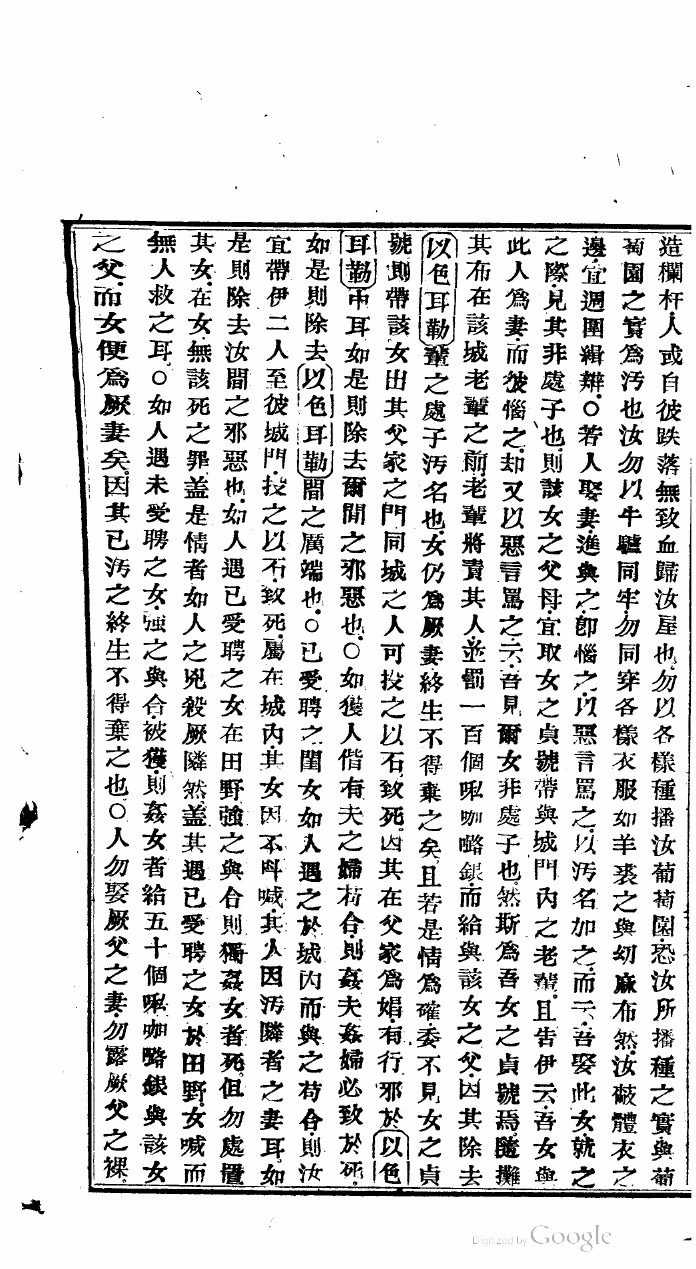 造欄杆人或自彼跌落無致血歸汝屋也勿以各樣種播汝葡萄園恐汝所播種之實與葡
萄園之實爲汚也汝勿以牛驢同牢勿同穿各樣衣服如羊裘之與幼麻布然汝蔽體衣之
邊宜週圍緝辮○若人娶妻進與之卽惱之以惡言罵之以汚名加之而云吾娶此女就之
之際見其非處子也則該女之父母宜取女之貞號帶與城門內之老輩且吿伊云吾女與
此人爲妻而彼惱之却又以惡言罵之云吾見爾女非處子也然斯爲吾女之貞號焉隨攤
其布在該城老輩之前老輩將責其人並罰一百個㖔咖咯銀而給與該女之父因其除去
以色耳勒輩之處子汚名也女仍爲厥妻終生不得棄之矣且若是情爲確委不見女之貞
號則帶該女出其父家之門同城之人可投之以石致死因其在父家爲娼有行邪於以色
耳勒中耳如是則除去爾間之邪惡也○如獲人偕有夫之婦苟合則姦夫姦婦必致於死
如是則除去以色耳勒間之厲端也○已受聘之閨女如人遇之於城內而與之苟合則汝
宜帶伊二人至彼城門投之以石致死屬在城內其女因不呌喊其人因汚隣者之妻耳如
是則除去汝間之邪惡也如人遇已受聘之女在田野強之與合則獨姦女者死但勿處置
其女在女無該死之罪盖是情者如人之兇殺厥隣然盖其遇已受聘之女於田野女喊而
無人救之耳○如人遇未受聘之女強之與合被獲則姦女者給五十個㖔咖咯銀與該女
之父而女便爲厥妻矣因其已汚之終生不得棄之也○人勿娶厥父之妻勿露厥父之裸
Digitized by Google